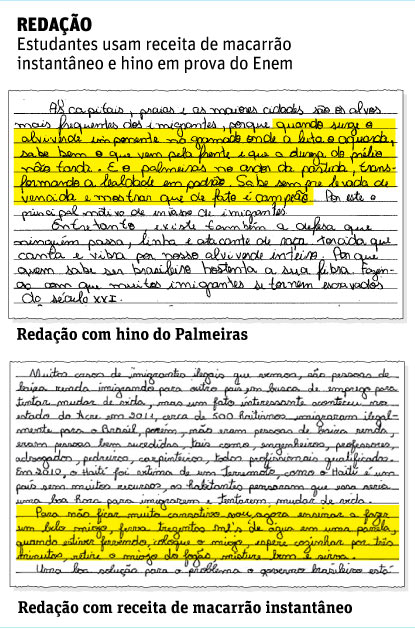 REDAÇÃO
Estudantes usam receita de macarrão
instantâneo e hino em prova do Enem
As capitais, praias e as maiores cidades são os alvos
mais frequentes dos imigrantes, porque quando surge o
alviverde imponente no gramado onde a luta o aguarda,
sabe bem o que vem pela frente e que a dureza do prélio
não tarda. E o palmeiras no ardor da partida, trans-
formando a lealdade em padrão. Sabe sempre levada de
vencida e mostrar que de fato é campeão. Por este o
principal motivo de invasão de imigrantes.
Entretanto existe também a defesa que
ninguém passa, linha e atacante de raça torcida que
canta e vibra por nosso alviverde inteiro. Por que
quem sabe ser brasileiro hostenta a sua fibra. Fazen-
do com que muitos imigrantes se tornem escravados
do século XXI.
Redação com hino do Palmeiras
Muitos casos de imigrantes ilegais que vemos, são pessoas de
baixa renda imigrando para outro país em busca de emprego para
tentar mudar de vida, mas um fato interessante aconteceu no
estado do Acre em 2011, cerca de 500 haitianos imigraram ilegal-
mente para o Brasil, porém, não eram pessoas de baixa renda,
eram pessoas bem sucedidas, tais como, engenheiros, professores,
advogados, pedreiros, carpinteiros, todos profissionais qualificados.
Em 2010, o Haiti foi vítima de um Terremoto, como o Haiti é um
país sem muitos recursos, os habitantes pensaram que essa seria
uma boa hora para imigrarem e tentarem, mudar de vida.
Para não ficar muito cansativo, vou agora ensinar a fazer
um belo miojo, ferva trezentos ml's de água em uma panela,
quando estiver fervendo, coloque o miojo, espere cozinhar por três
minutos, retire o miojo do fogão, misture bem e sirva.
Uma boa solução para o problema o governo brasileiro está
Redação com receita de macarrão instantâneo